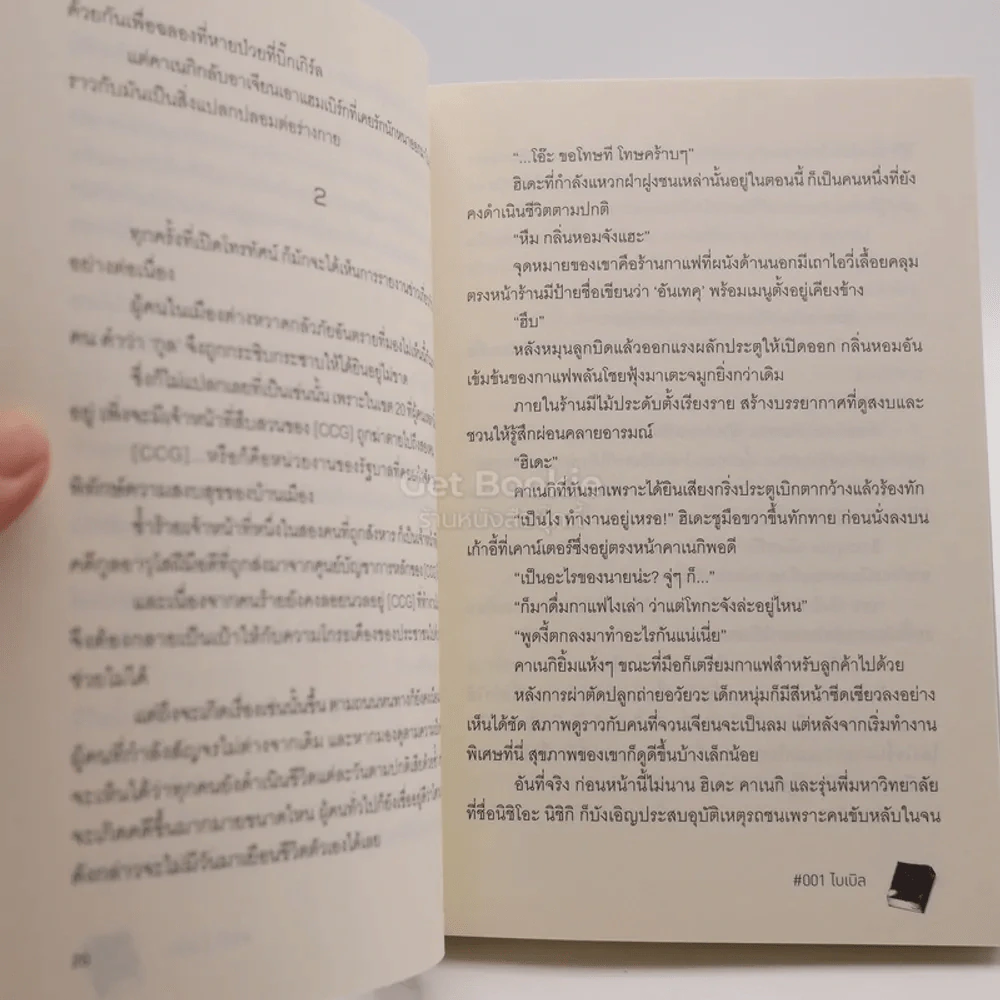 ด้วยกันเพื่อฉลองที่หายป่วยที่บิ๊กเกิร์ล
แต่คาเนกิกลับอาเจียนเอาแฮมเบิร์กที่เคยรักนักหนาออกมา
ราวกับมันเป็นสิ่งแปลกปลอมต่อร่างกาย
2
ทุกครั้งที่เปิดโทรทัศน์ ก็มักจะได้เห็นการรายงานข่าว
อย่างต่อเนื่อง
ผู้คนในเมืองต่างหวาดกลัวภัยอันตรายที่มองไม่เห็น
คน คำว่า 'กูล' จึงถูกกระซิบกระซาบให้ได้ยินอยู่ไม่ขาด
ซึ่งก็ไม่แปลกเลยที่เป็นเช่นนั้น เพราะในเขต 20 ที่
อยู่ เพิ่งจะมีเจ้าหน้าที่สืบสวนของ [CCG] ถูกฆ่าตายไปถึงสอง
[CCG]...หรือก็คือหน่วยงานของรัฐบาลที่
พิทักษ์ความสงบสุขของบ้านเมือง
ซ้ำร้ายเจ้าหน้าที่หนึ่งในสองคนที่ถูกสังหาร ก็เป็น
คดีกูลอาวุโสฝีมือดีที่ถูกส่งมาจากศูนย์บัญชาการหลักของ
และเนื่องจากคนร้ายยังคงลอยนวลอยู่ [CCG]
จึงต้องกลายเป็นเป้าให้กับความโกรธเคืองของประชาชน
ช่วยไม่ได้
แต่ถึงจะเกิดเรื่องเช่นนั้นขึ้น ตามถนนหนทางก็ยัง
ผู้คนที่กำลังสัญจรไม่ต่างจากเดิม และหากมองดู
จะเห็นได้ว่าทุกคนยังดำเนินชีวิตแต่ละวันตามปกติ
จะเกิดคดีขึ้นมากมายขนาดไหน ผู้คนทั่วไปก็ยังเชื่ออยู่
ดังกล่าวจะไม่มีวันมาเยือนชีวิตตัวเองได้เลย
"...โอ๊ะ ขอโทษที โทษคร้าบๆ"
ฮิเดะที่กำลังแหวกฝ่าฝูงชนเหล่านั้นอยู่ในตอนนี้ ก็เป็นคนหนึ่งที่ยัง
คงดำเนินชีวิตตามปกติ
"หืม กลิ่นหอมจังแฮะ"
จุดหมายของเขาคือร้านกาแฟที่ผนังด้านนอกมีเถาไอวี่เลื้อยคลุม
ตรงหน้าร้านมีป้ายชื่อเขียนว่า 'อันเทคุ' พร้อมเมนูตั้งอยู่เคียงข้าง
"ฮึบ"
หลังหมุนลูกบิดแล้วออกแรงผลักประตูให้เปิดออก กลิ่นหอมอัน
เข้มข้นของกาแฟพลันโชยฟุ้งมาเตะจมูกยิ่งกว่าเดิม
ภายในร้านมีไม้ประดับตั้งเรียงราย สร้างบรรยากาศที่ดูสงบและ
ชวนให้รู้สึกผ่อนคลายอารมณ์
"ฮิเดะ"
คาเนกิที่หันมาเพราะได้ยินเสียงกริ่งประตูเบิกตากว้างแล้วร้องทัก
"เป็นไง ทำงานอยู่เหรอ!" ฮิเดะชูมือขวาขึ้นทักทาย ก่อนนั่งลงบน
เก้าอี้ที่เคาน์เตอร์ซึ่งอยู่ตรงหน้าคาเนกิพอดี
"เป็นอะไรของนายน่ะ? จู่ๆ ก็..."
"ก็มาดื่มกาแฟไงเล่า ว่าแต่โทกะจังล่ะอยู่ไหน"
"พูดงี้ตกลงมาทำอะไรกันแน่เนี่ย"
คาเนกิยิ้มแห้งๆ ขณะที่มือก็เตรียมกาแฟสำหรับลูกค้าไปด้วย
หลังการผ่าตัดปลูกถ่ายอวัยวะ เด็กหนุ่มก็มีสีหน้าซีดเซียวลงอย่าง
เห็นได้ชัด สภาพดูราวกับคนที่จวนเจียนจะเป็นลม แต่หลังจากเริ่มทำงาน
พิเศษที่นี่ สุขภาพของเขาก็ดูดีขึ้นบ้างเล็กน้อย
อันที่จริง ก่อนหน้านี้ไม่นาน ฮิเดะ คาเนกิ และรุ่นพี่มหาวิทยาลัย
ที่ชื่อนิชิโอะ นิชิกิ ก็บังเอิญประสบอุบัติเหตุรถชนเพราะคนขับหลับในจน
#001 ไบเบิล
Get Bookie